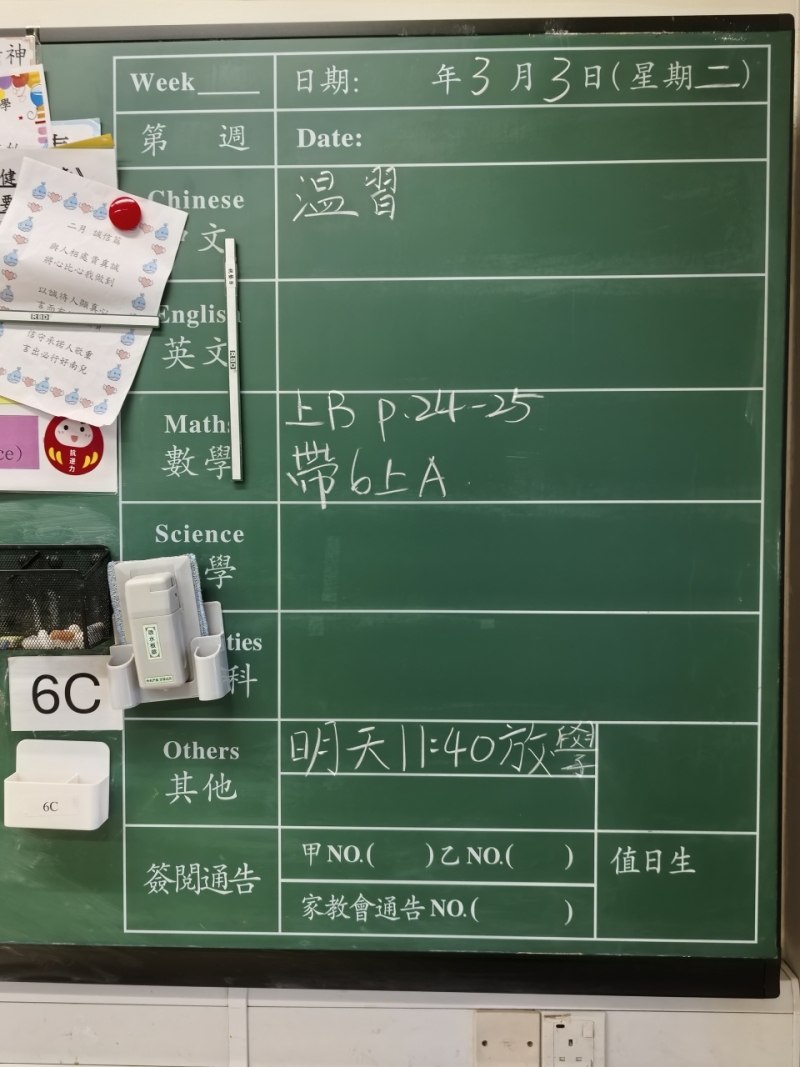 神
Week____ 日期: 年3月3日(星期二)
第 週 Date:
Chinese 溫習
文
English
英文
Maths 上B p.24-25
數學 帶6上A
Science
學
ties
科
Others 明天11:40放學
其他
簽閱通告 甲NO.( )乙NO.( ) 值日生
家教會通告NO.( )
學
健
要
二月 誠信篇
與人相處貴真誠
將心比心我做到
以誠待人顯真心
RBD
信守承諾人敬重
言出必行好南兒
ce)
6C
6C